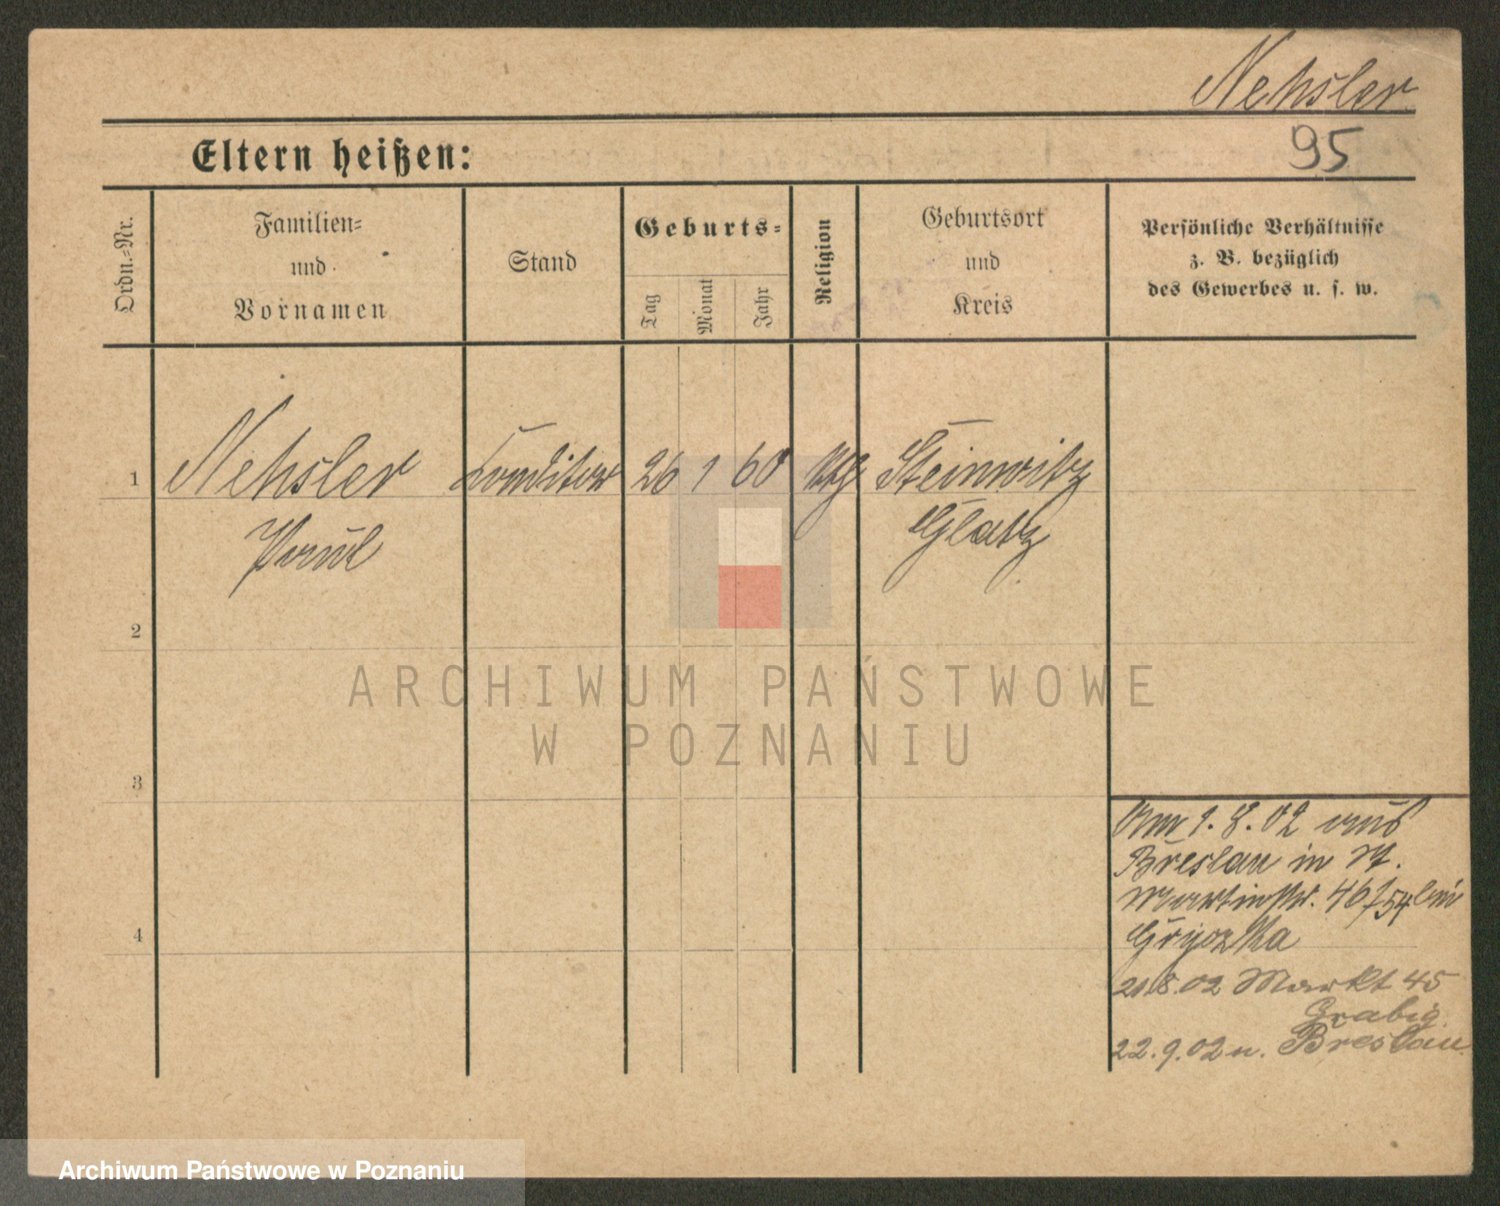 Nehsler
95
Eltern heißen:
Ordn.-Nr.
Familien-
und
Vornamen
Stand
Geburts-
Tag
Monat
Jahr
Religion
Geburtsort
und
Kreis
Persönliche Verhältnisse
z. B. bezüglich
des Gewerbes u. s. w.
1 Nehsler Conditor 26 1 60 Steinwitz
Paul Glatz
2
3
4
Am 1. 8. 02 aus
Breslau in St.
Martinstr. 46/54 bei
21.8.02 Markt 45
Grabig
22.9.02 n. Breslau
ARCHIWUM PAŃSTWOWE
W POZNANIU
Archiwum Państwowe w Poznaniu